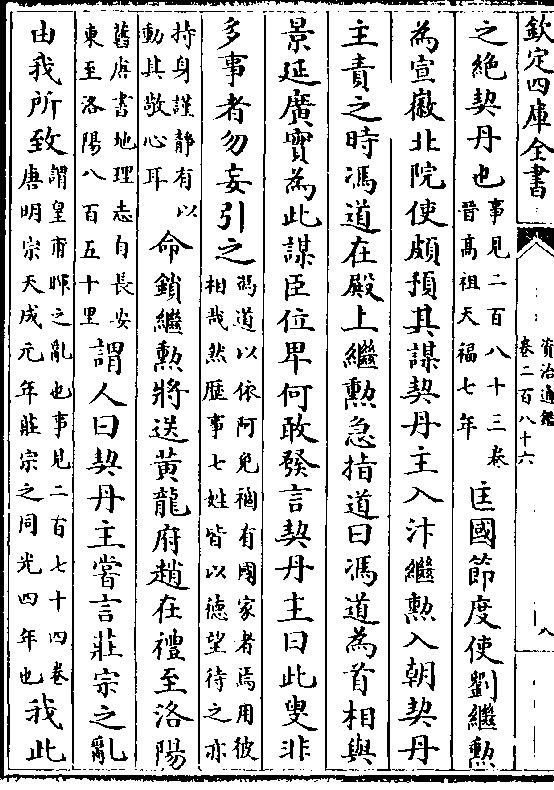 欽定四庫全書
資治通鑑
卷二百八十六
八
之絶契丹也事見二百八十三卷晉髙祖天福七年匡國節度使劉繼勲
為宣徽北院使頗預其謀契丹主入汴繼勲入朝契丹
主責之時馮道在殿上繼勲急指道曰馮道為首相與
景延廣實為此謀臣位卑何敢發言契丹主曰此叟非
多事者勿妄引之馮道以依阿免禍有國家者焉用彼相哉然歴事七姓皆以德望待之亦
持身謹静有以動其敬心耳命鎖繼勲將送黄龍府趙在禮至洛陽
舊唐書地理志自長安東至洛陽八百五十里謂人曰契丹主嘗言莊宗之亂
由我所致謂皇甫暉之亂也事見二百七十四卷唐明宗天成元年莊宗之同光四年也我此